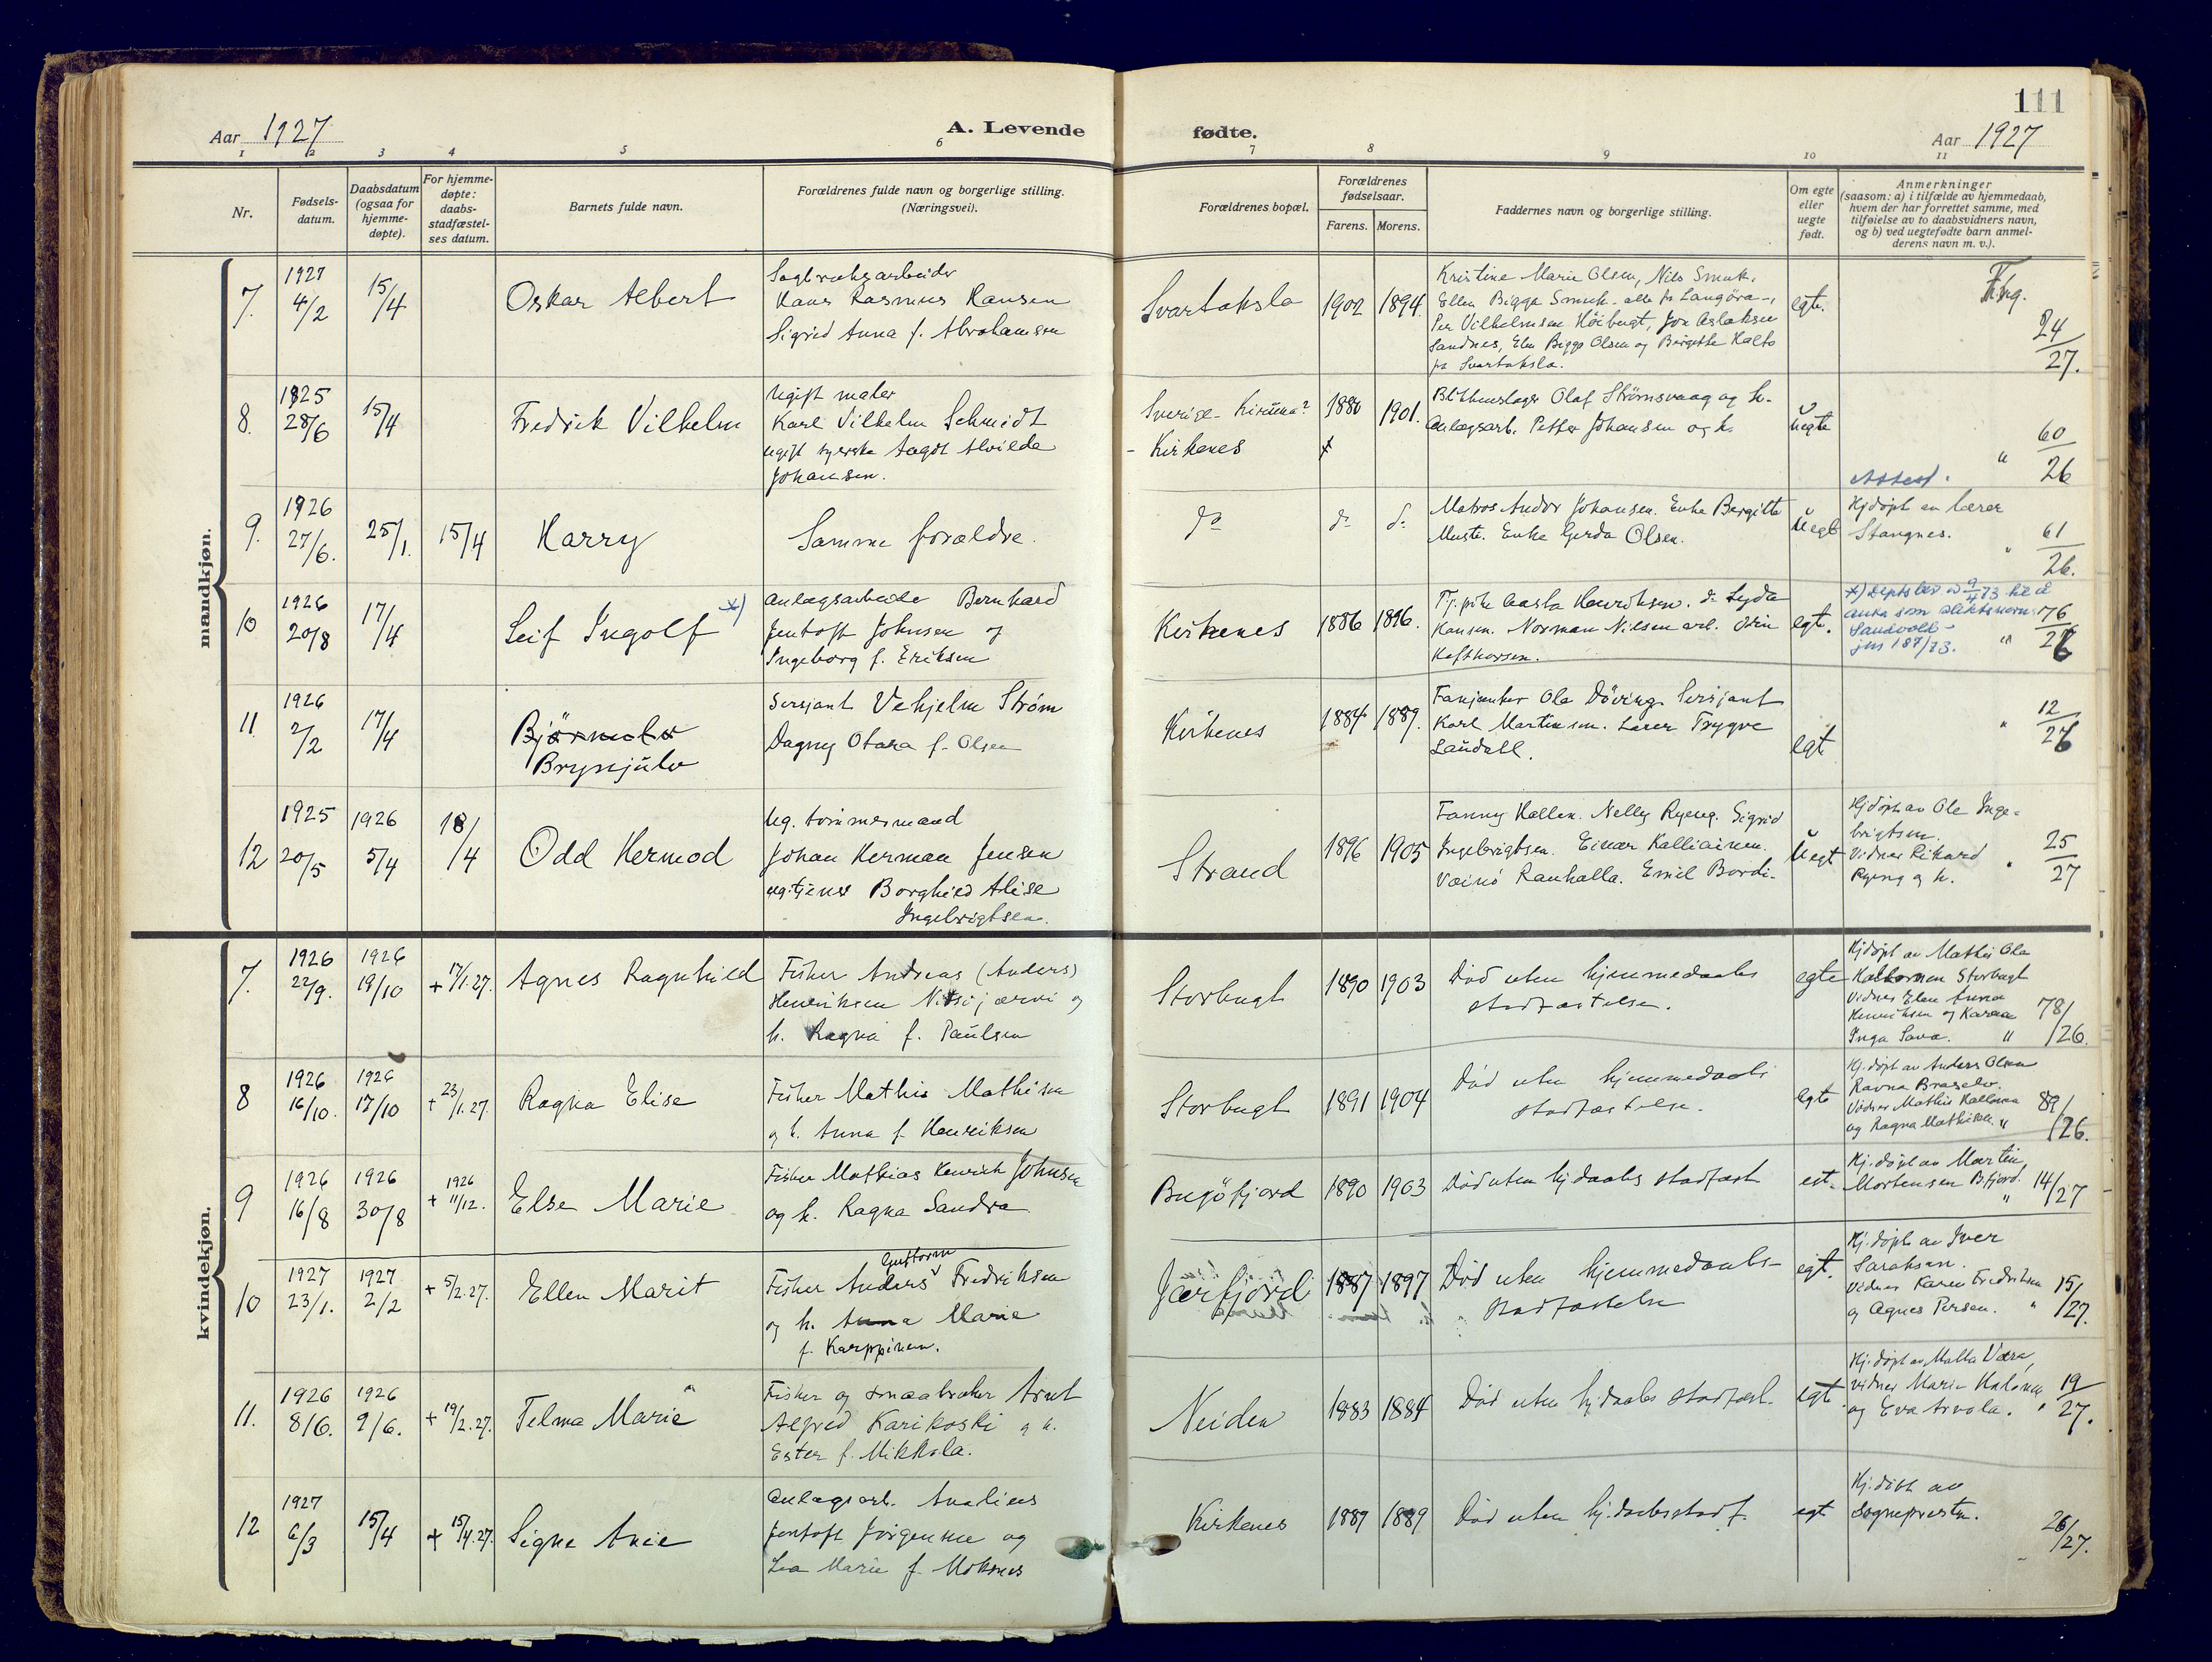 111
Aar 1927
A. Levende
fødte.
Aar 1927
1 2 3 4 5 6 7 8 9 10 11
Nr.
Fødsels-
datum.
Daabsdatum
(ogsaa for
hjemme-
døpte).
For hjemme-
døpte:
daabs-
stadfæstel-
ses datum.
Barnets fulde navn.
Forældrenes fulde navn og borgerlige stilling.
(Næringsvei).
Forældrenes bopæl.
Forældrenes
fødselsaar.
Farens. Morens.
Faddernes navn og borgerlige stilling.
Om egte
eller
uegte
født.
Anmerkninger
(saasom: a) i tilfælde av hjemmedaab,
hvem der har forrettet samme, med
tilføielse av to daabsvidners navn,
og b) ved uegtefødte barn anmel-
derens navn m. v.).
mandkjøn.
7. 1927 4/2 15/4 Oskar Albert
Sagbruksarbeider
Hans Rasmus Hansen
Sigrid Anna f. Abrahamsen
Svartaksla 1902 1894.
Kristine Marie Olsen, Nils Smuk.
Ellen Bigga Smuk. alle fr Langöra
Per Vilhelmsen Höibugt, Jon Aslaksen
Sandnes, Elen Bigga Olsen og Bergitte Halto
fra Svartaksla.
egte.
24/27.
8. 1925 28/6 15/4 Fredrik Vilhelm
Ugift maler
Karl Vilhelm Schmidt
ugift syerske Aagot Alvilde
Johansen.
Sverige - Kiruna?
- Kirkenes
1880 1901.
Blikkenslager Olaf Strømsvaag og h.
Anlægsarb. Petter Johansen og h.
uegte
" 60/26
Attest.
9. 1926 27/6. 25/1. 15/4 Harry
Samme forældre.
do do do
Matros Andor Johansen. Enke Bergitte
Muste. Enke Gerda Olsen.
Uegt
Hjdøpt av lærer
Stangnes.
" 61/26.
10 1926 20/8 17/4 Leif Ingolf x)
Anlægsarbeider Bernhard
Jentoft Johnsen og
Ingeborg f. Eriksen
Kirkenes 1886 1896.
Tj.pike Aasta Henriksen. do Lyda
Hansen. Norman Nilsen arb. Odin
Hafthorsen.
egte.
x) Depts brev 9/4 73 til å
anta som slektsnavn
Sandvold -
jnr 187/73.
" 76/26
11 1926 2/2 17/4 Bjørnulv
Brynjulv
Sersjant Vehjelm Strøm
Dagny Otara f. Olsen
Kirkenes 1884 1889.
Fanjunker Ola Döving. Sersjant
Karl Martinsen. Lærer Trygve
Landall.
egt
" 12/26
12 1925 20/5 1926 5/4 18/4 Odd Hermod
Ug. tømmermand
Johan Herman Jensen
ug tjener Borghild Alise
Ingebrigtsen.
Strand 1896 1905
Fanny Hallen. Nelly Ryeng. Sigrid
Ingebrigtsen. Einar Kalliainen.
Vainö Rauhalla. Emil Bordi-
Uegt
Hjdøpt av Ole Inge-
brigtsen.
Vidner Rikard
Ryeng og h.
" 25/27
kvindekjøn.
7. 1926 22/9. 1926 19/10 + 17/1.27. Agnes Ragnhild
Fisker Andreas (Anders)
Henriksen Nitsijærvi og
h. Ragna f. Paulsen
Storbugt 1890 1903
Död uten hjemmedaabs
stadfæstelse.
egte
Hjdøpt av Mathis Ola
Storbugt
Vidner Elen Anna
Henriksen og Karen
Inga Sava. " 78/26.
8 1926 16/10. 1926 17/10 + 23/1.27. Ragna Elise
Fisker Mathis Mathisen
og h. Anna f. Henriksen
Storbugt 1891 1904
Död uten hjemmedaabs
stadfæstelse.
egte
Hj. døpt av Anders Olsen
Ravna Braselv.
Vidner Mathis
og Ragna Mathisen. " 89/26.
9 1926 16/8 1926 30/8 + 1926 11/12. Else Marie
Fisker Mathias Henrik Johnsen
og h. Ragna Sandra
Bugöfjord 1890 1903
Död uten hjdaabs stadfæst
egt.
Hj. døpt av Martin
Mortensen B.fjord. " 14/27
10 1927 23/1. 1927 2/2 + 5/2.27. Ellen Marit
Guttorm
Fisker Anders Fredriksen
og h. Anna Marie
f. Karppinen.
Jarfjord 1887 1897
Död uten hjemmedaabs-
stadfæstelse
egt.
Hj. døpt av Iver
Saraksen.
Vidner Karen Fredriksen
og Agnes Persen. " 15/27.
11. 1926 8/6. 1926 9/6. + 19/2.27. Telma Marie
Fisker og smaabruker Arnt
Alfred Karikoski og h.
Ester f. Mikkola.
Neiden 1883 1884
Död uten hjdaabs stadfæst.
egt.
Hj. døpt av Malla Vara,
vidner Marie Halonen
og Eva Arvola. " 19/27.
12 1927 6/3 15/4 + 15/4.27. Signe Anie
Anlægsarb. Analius
Jentoft Jörgensen og
Lea Marie f. Moksnes
Kirkenes 1887 1889
Död uten hj.daabsstadf.
egt
Hj. döbt av
Sognepresten.
26/27.